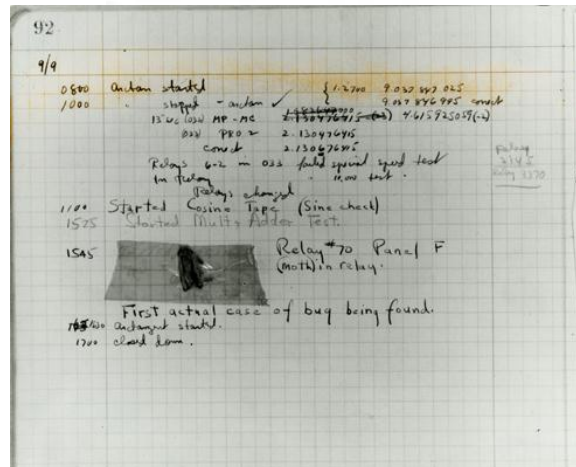 92
9/9
0800 Antan started { 1.2700 9.037 847 025
1000 " stopped - antan ✓ 9.037 846 995 correct
13"UC (032) MP-MC 2.130476415 (-3) 4.615925059(-2)
(033) PRO 2 2.130476415
correct 2.130676415
Relays 6-2 in 033 failed special speed test
in relay " 10,000 test.
Relays changed
Relay
2145
Relay 3370
1100 Started Cosine Tape (Sine check)
1525 Started Mult+Adder Test.
1545 Relay #70 Panel F
(moth) in relay.
First actual case of bug being found.
1630 antangent started.
1700 closed down.